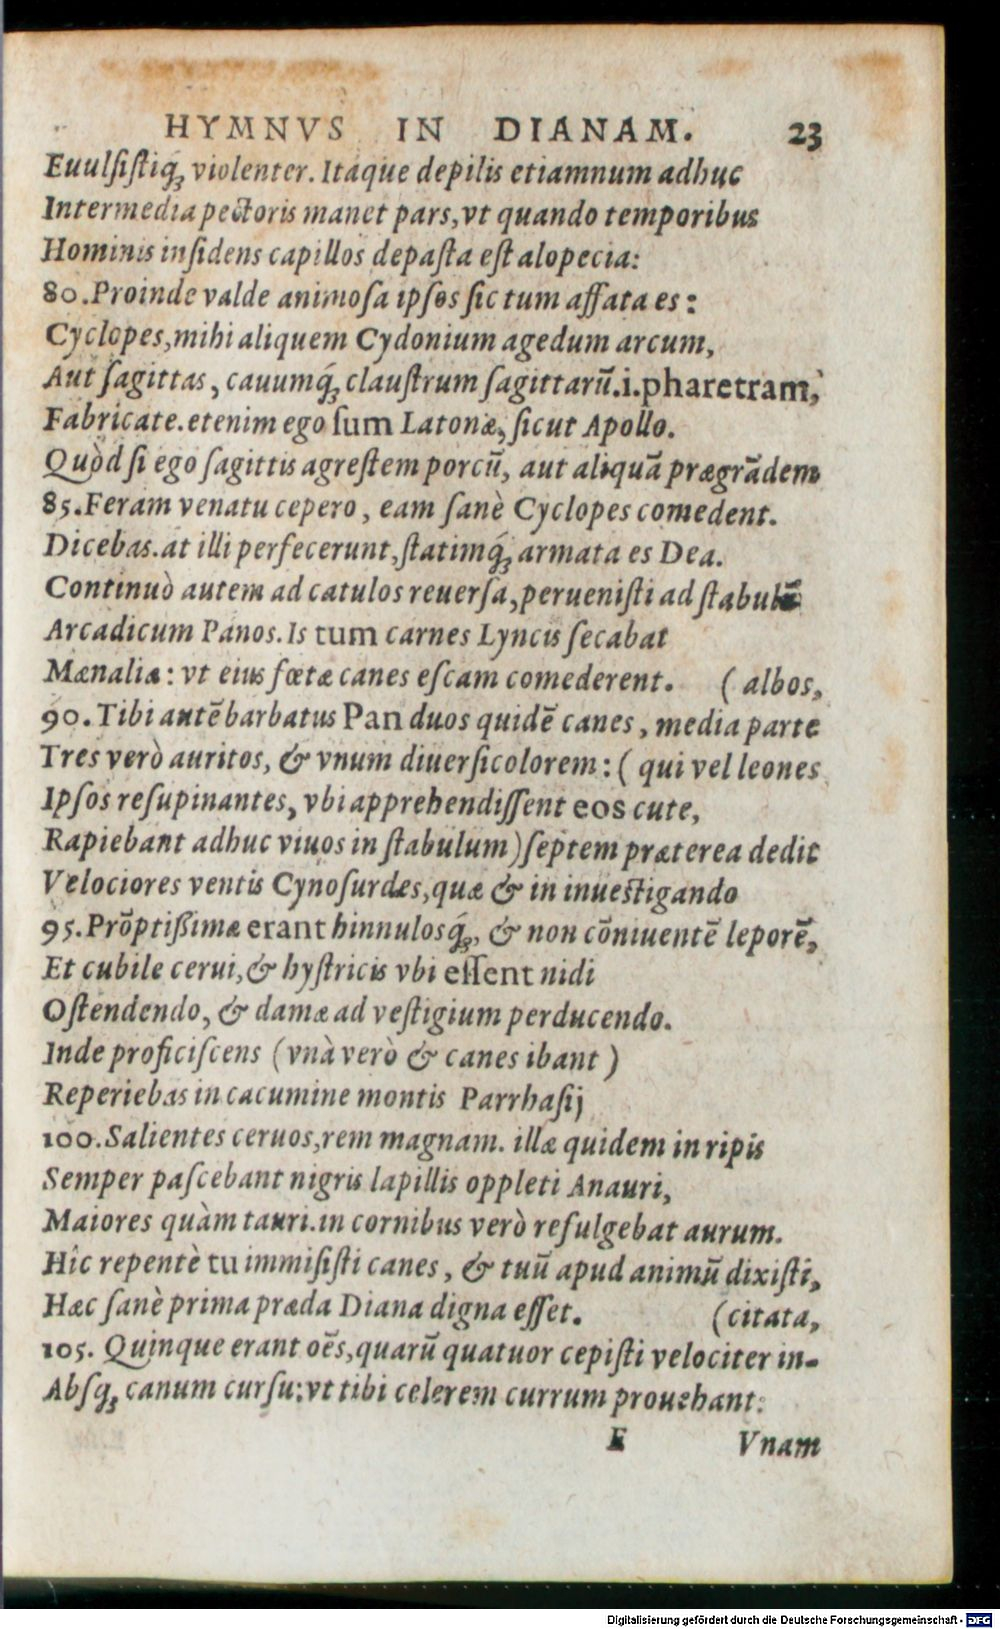 HYMNVS IN DIANAM. 23
Euulſiſtiq́ꝫ violenter. Itaque depilis etiamnum adhuc
Intermedia pectoris manet pars, vt quando temporibus
Hominis inſidens capillos depaſta eſt alopecia:
80. Proinde valde animoſa ipſos ſic tum affata es:
Cyclopes, mihi aliquem Cydonium agedum arcum,
Aut ſagittas, cauumq́ꝫ clauſtrum ſagittarũ. i. pharetram,
Fabricate. etenim ego ſum Latonæ, ſicut Apollo.
Quòd ſi ego ſagittis agreſtem porcũ, aut aliquã prægrãdem
85. Feram venatu cepero, eam ſanè Cyclopes comedent.
Dicebas. at illi perfecerunt, ſtatimq́ꝫ armata es Dea.
Continuò autem ad catulos reuerſa, perueniſti ad ſtabulũ
Arcadicum Panos. Is tum carnes Lyncis ſecabat
Mænaliæ: vt eius fœtæ canes eſcam comederent. (albos,
90. Tibi autẽ barbatus Pan duos quidẽ canes, media parte
Tres verò auritos, & vnum diuerſicolorem: (qui vel leones
Ipſos reſupinantes, vbi apprehendiſſent eos cute,
Rapiebant adhuc viuos in ſtabulum) ſeptem præterea dedit
Velociores ventis Cynoſurdes, quæ & in inueſtigando
95. Prõptißimæ erant hinnulosq́ꝫ, & non cõniuentẽ leporẽ,
Et cubile cerui, & hyſtricis vbi eſſent nidi
Oſtendendo, & damæ ad veſtigium perducendo.
Inde proficiſcens (vnà verò & canes ibant)
Reperiebas in cacumine montis Parrhaſij
100. Salientes ceruos, rem magnam. illæ quidem in ripis
Semper paſcebant nigris lapillis oppleti Anauri,
Maiores quàm tauri. in cornibus verò refulgebat aurum.
Hîc repentè tu immiſiſti canes, & tuũ apud animũ dixiſti,
Hæc ſanè prima præda Diana digna eſſet. (citata,
105. Quinque erant oẽs, quarũ quatuor cepiſti velociter in-
Abſqꝫ canum curſu: vt tibi celerem currum prouehant:
F Vnam
Digitalisierung gefördert durch die Deutsche Forschungsgemeinschaft - DFG